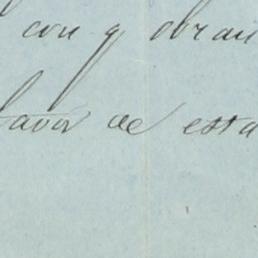 con q obran
favor de esta